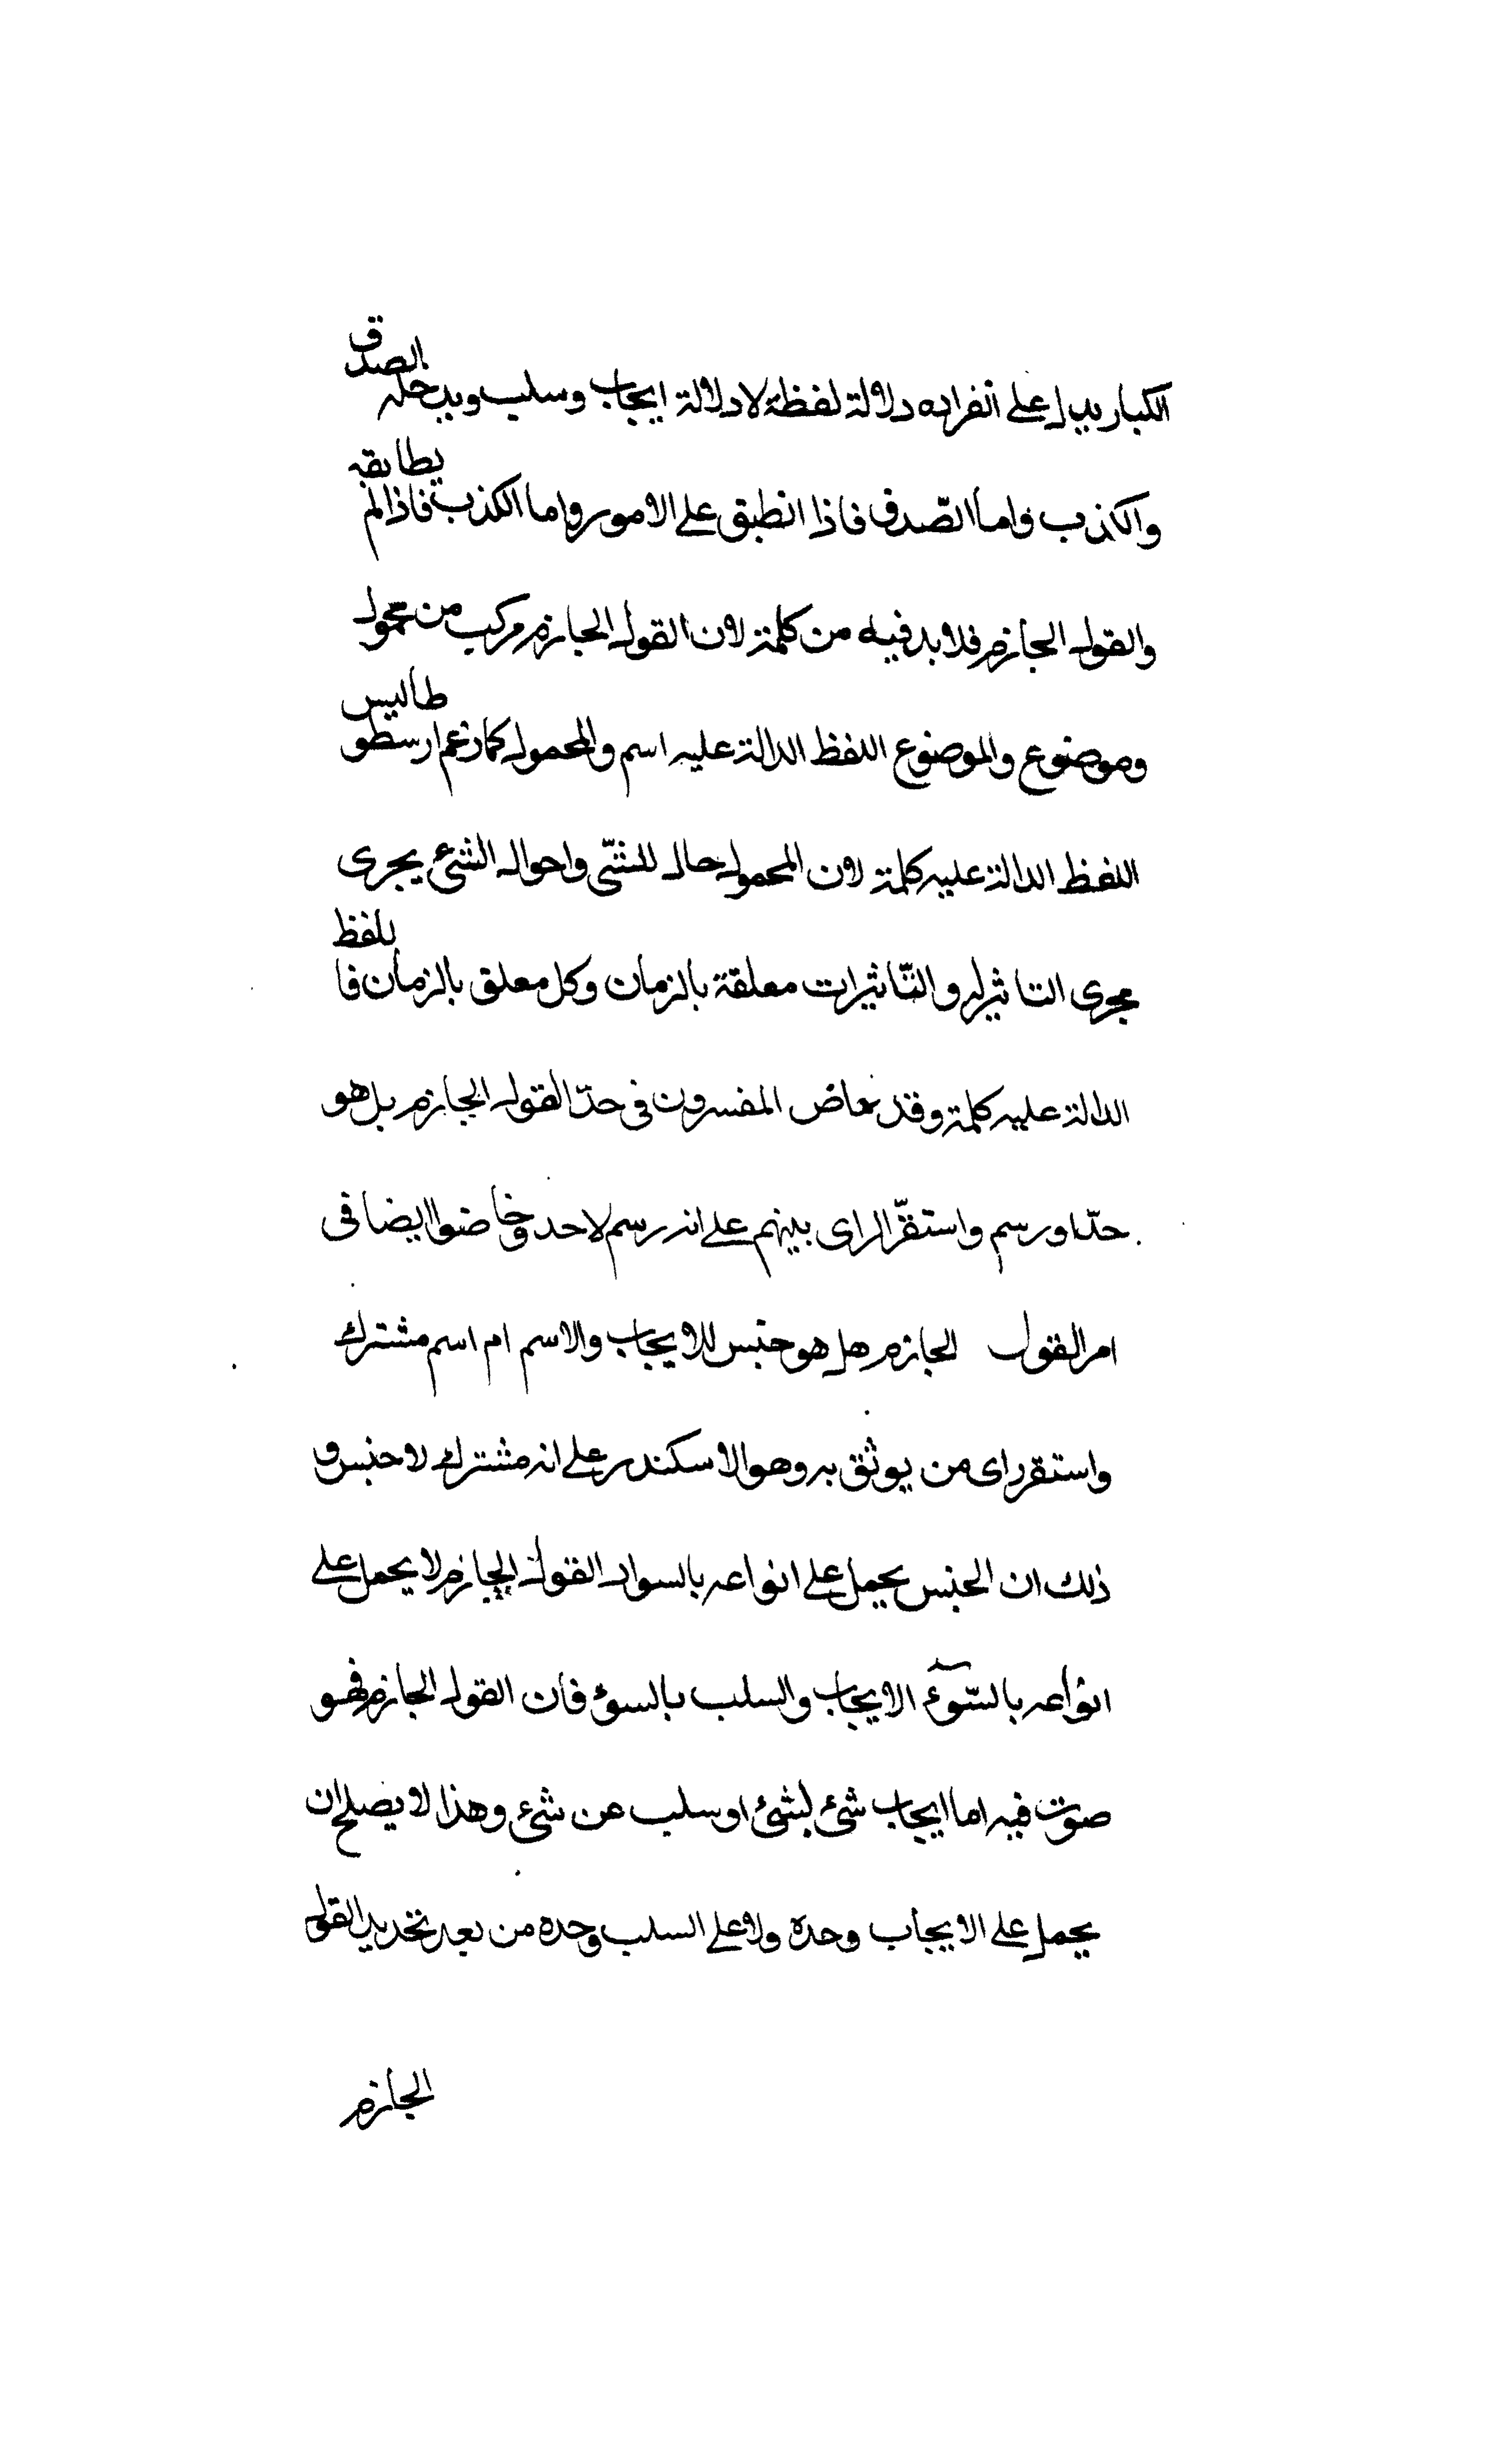 الكبار يدل على انفراده دلالة لفظة لا دلالة ايجاب وسلب ويدخله الصدق
والكذب واما الصّدق فاذا انطبق على الامور واما الكذب فاذا لم يطابقه
والقول الجازم فلا بد فيه من كلمة لان القول الجازم مركب من محمول
وموضوع والموضوع اللفظ الدالة عليه اسم والمحمول كما زعم ارسطوطاليس
اللفظ الدالة عليه كلمة لان المحمول حال للشّى واحوال الشئ يجرى
مجرى التاثير له والتّاثيرات معلقة بالزمان وكل معلق بالزمان فاللفظ
الدالة عليه كلمة وقد المفسرون فى حدّ القول الجازم بل هو
حدّ او رسم واستقرّ الراى بينهم على انه رسم لا حد وخاضوا ايضا فى
امر القول الجازم هل هو جنس للايجاب والاسم ام اسم مشترك
واستقر راى من يوثق به وهو الاسكندر على انه مشترك لا جنس و
ذلك ان الجنس يحمل على انواعه بالسوا القول الجازم لا يحمل على
انواعه بالسّوء الايجاب والسلب بالسوء فان القول الجازم فهو
صوت فيه اما ايجاب شئ لشئ او سلب عن شئ وهذا لا يصلح ان
يحمل على الايجاب وحده ولا على السلب وحده من بعد تحديد القول
الجازم